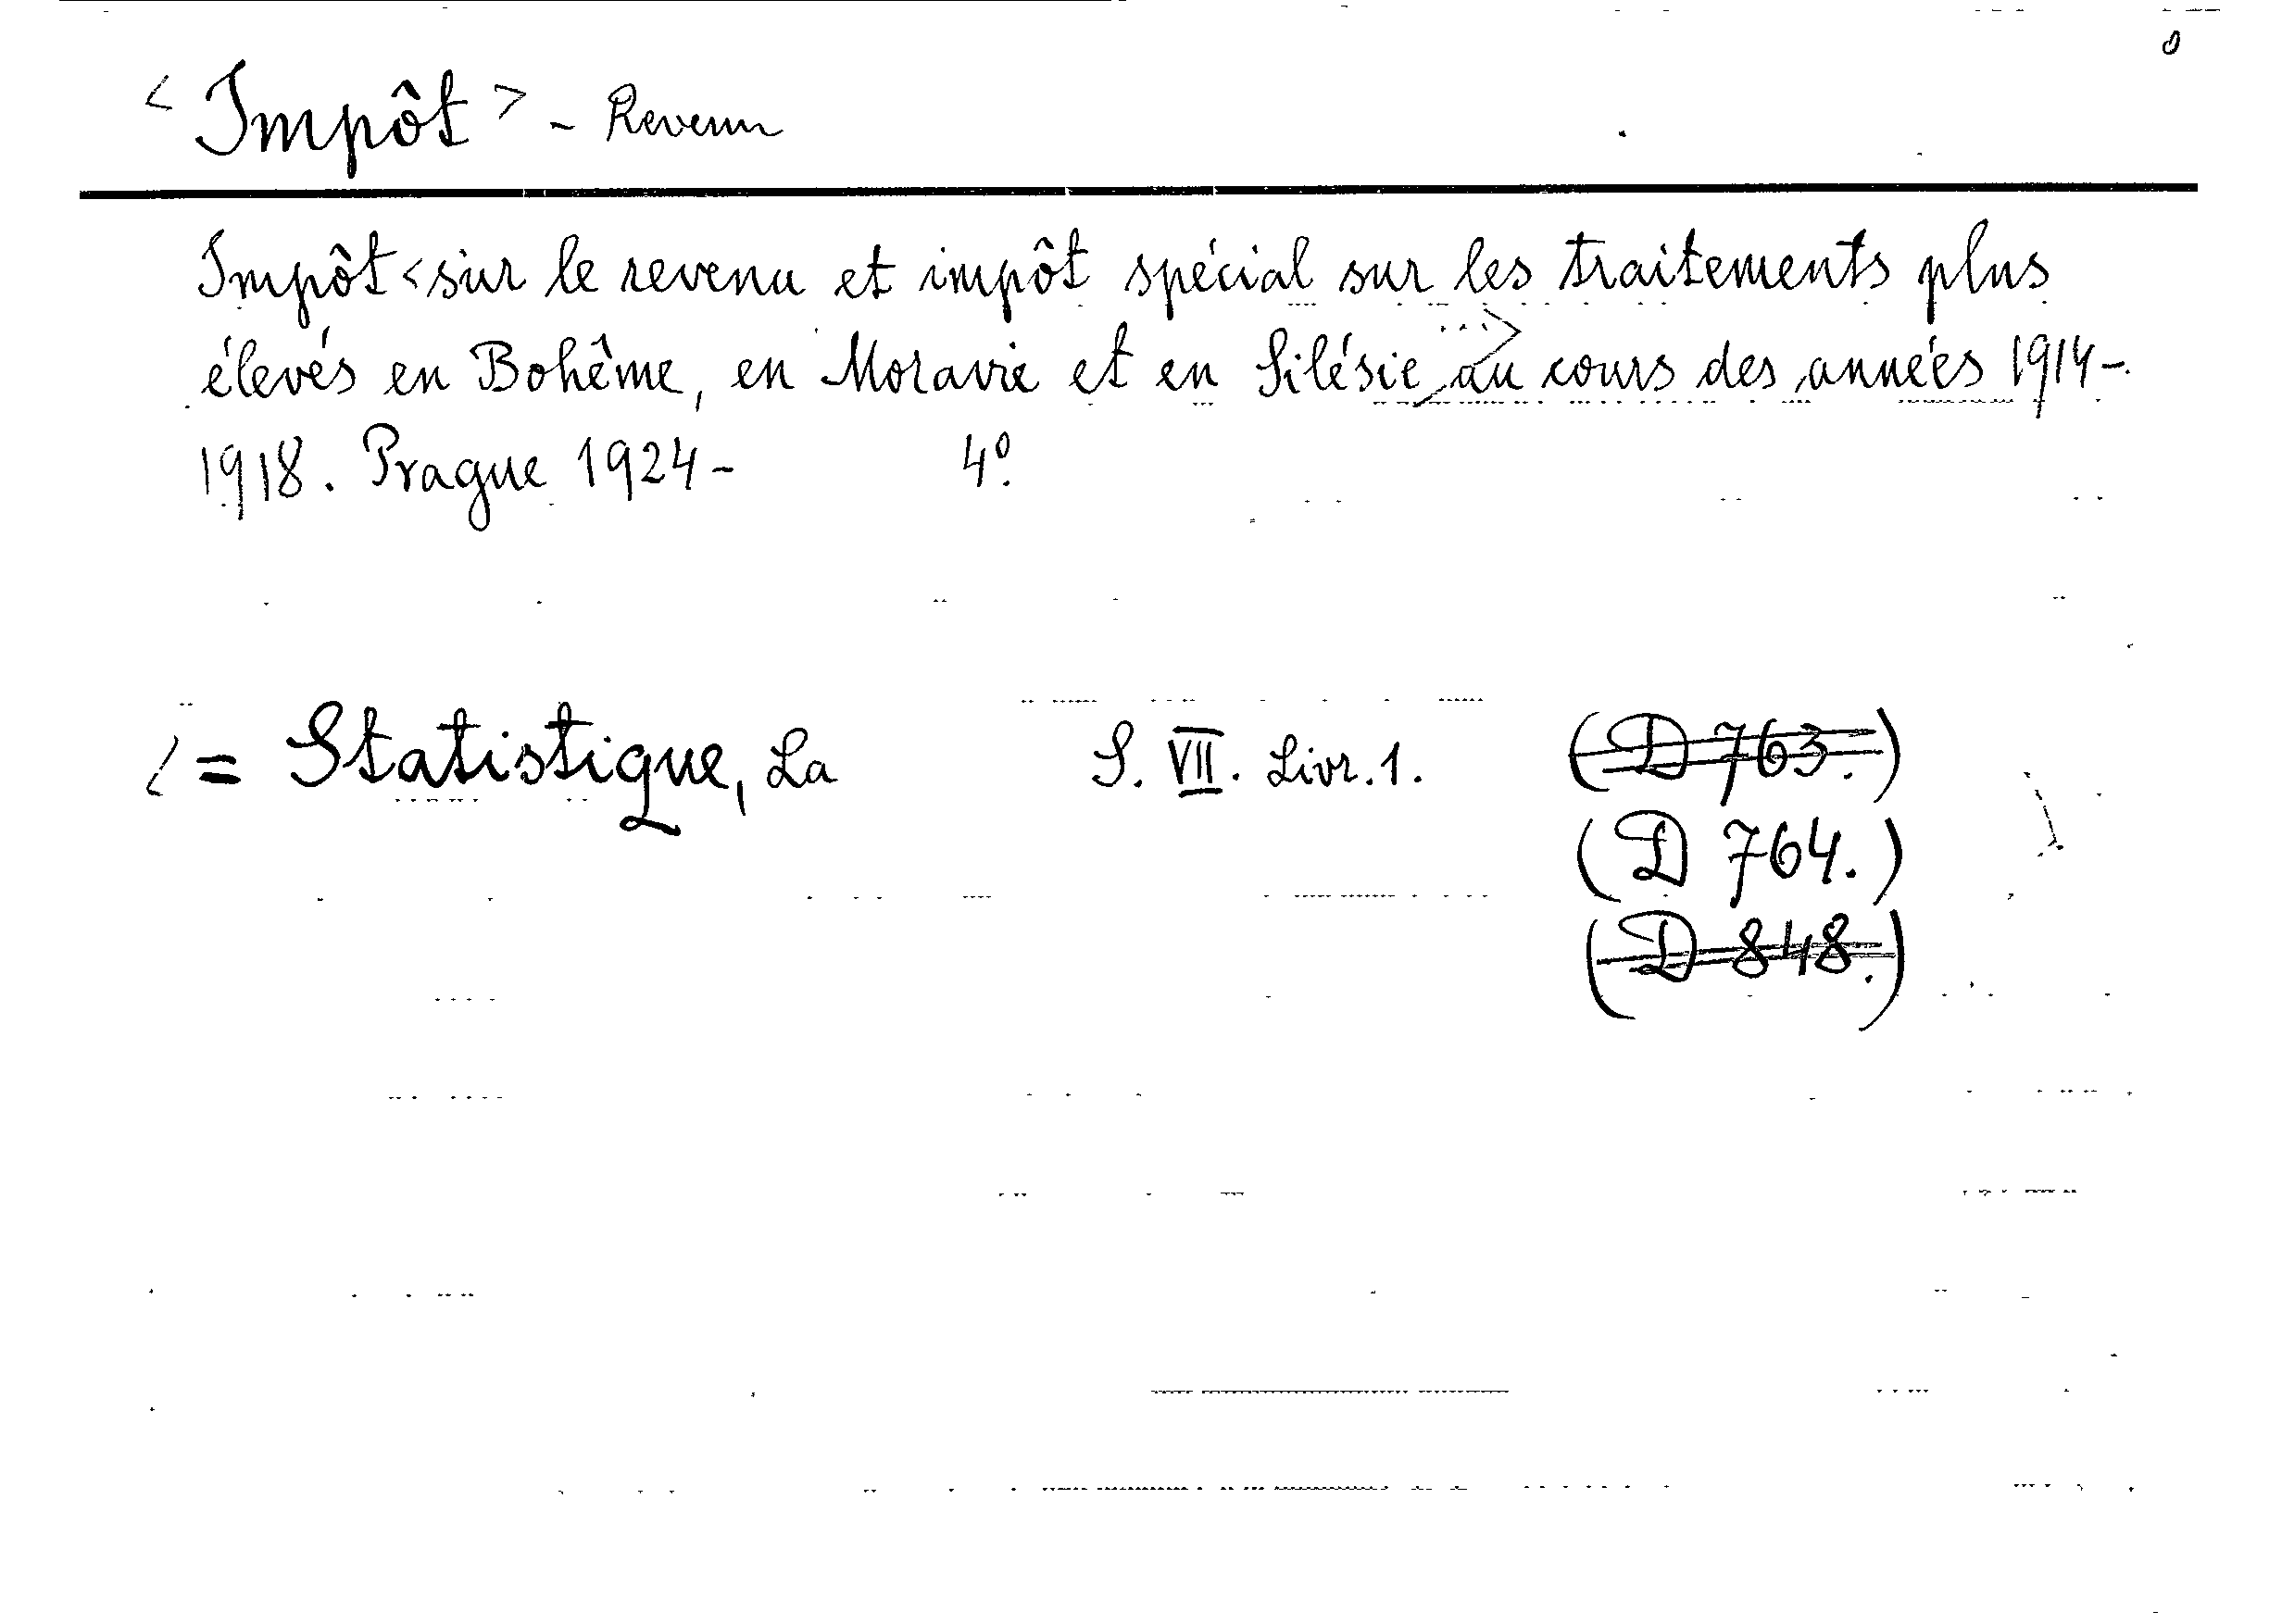 < Impôt > - Revenu
Impôt < sur le revenu et impôt spécial sur les traitements plus
élevés en Bohême, en Moravie et en Silésie > au cours des années 1914-
1918. Prague 1924- 4º.
< = Statistique, La S. VII. Livr. 1. (D 763.)
(D 764.)
(D 848.)